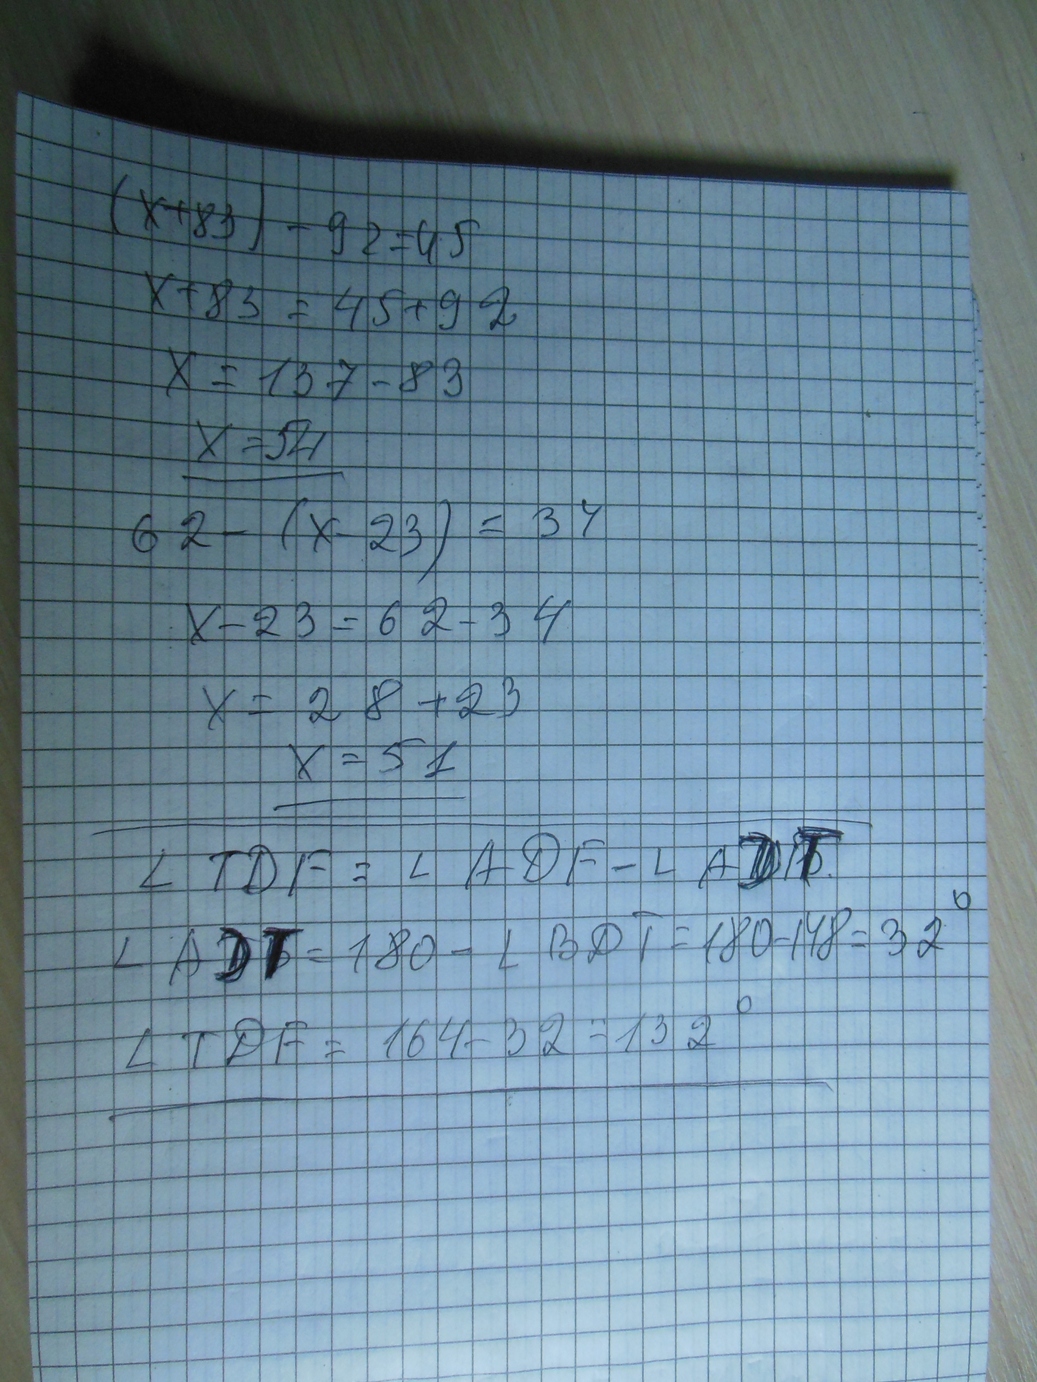 (x+83) - 92=45
x+83 = 45+92
x = 137-83
x =54
62- (x-23) = 34
x-23=62-34
x= 28+23
x=51
∠ TDF= ∠ ADF-∠ ADT.
∠ ADT=180-∠ BDT=180-148=32°
∠ TDF= 164-32=132°